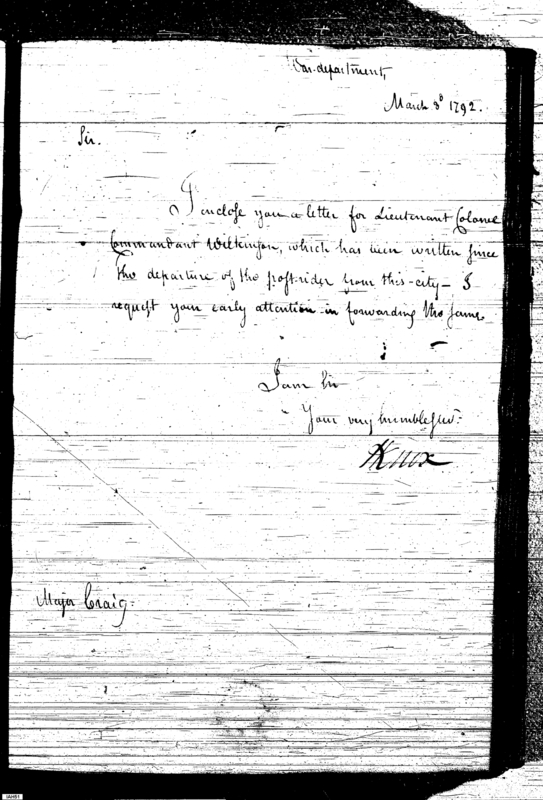 War department,
March 8th 1792.
Sir.
I enclose you a letter for Lieutenant Colonel
Commandant Wilkinson, which has been written since
the departure of the post-rider from this city — I
request your early attention in forwarding the same
I am Sir
Your very humble Servt.
HKnox
Major Craig.
IAH51